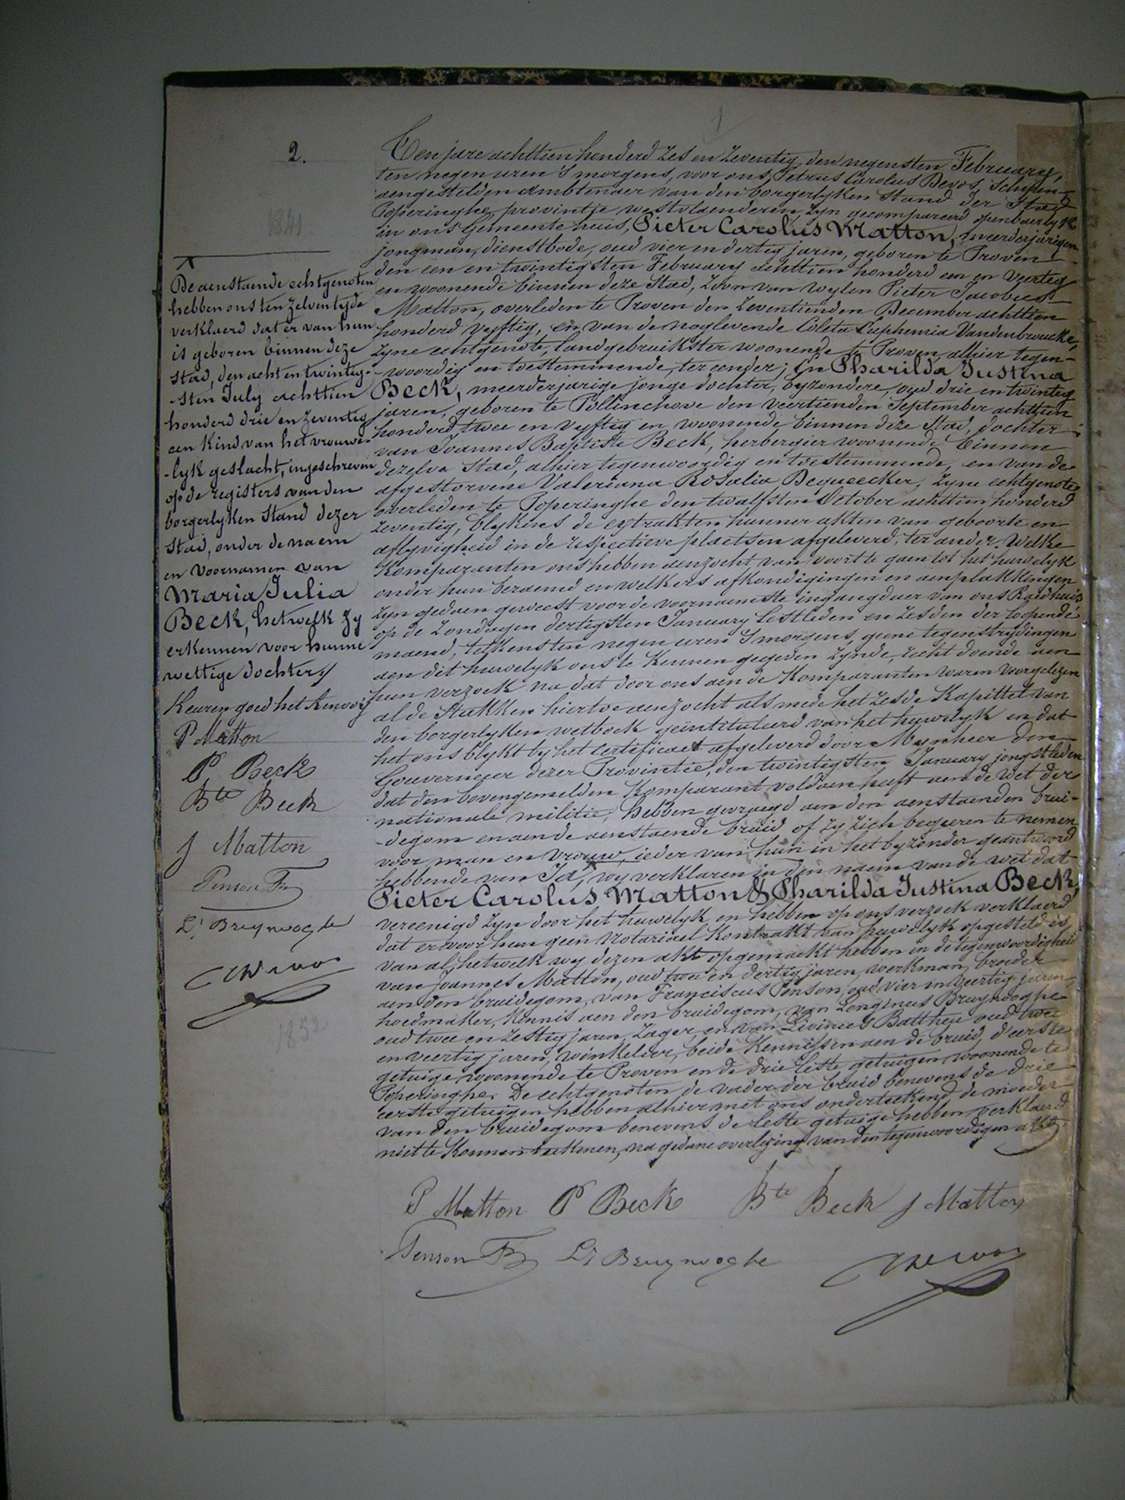 2.
1841
De aenstaende echtgenoten
hebben ons ten zelven tyde
verklaerd dat er van hun
is geboren binnen deze
stad, den acht en twintig-
-sten July achttien
honderd drie en zeventig
een kind van het vrouwe-
-lyk geslacht, ingeschreven
op de registers van den
borgerlyken stand dezer
stad, onder de naem
en voornamen van
Maria Julia
Beck, hetwelk zy
erkennen voor hunne
wettige dochter
Keuren goed het renvooi
P Matton
P. Beck
Bte Beck
J Matton
Penson Fr
Ls Bruynooghe
1852
Ten jare achttien honderd zes en zeventig, den negensten February,
ten negen uren 's morgens, voor ons, Petrus Carolus Devos, Schepen-
aengestelden ambtenaer van den borgerlyken stand der Stad
Poperinghe, provintje westvlaenderen, zyn gecompareerd openbaerlyk
in ons Gemeente huis, Pieter Carolus Matton, meerderjarigen
jongman, dienstbode, oud vier en dertig jaren, geboren te Proven
den een en twintigsten February achttien honderd een en veertig
en woonende binnen deze Stad, zoon van wylen Pieter Jacobus
Matton, overleden te Proven den zeventienden December achttien
honderd vyftig, en van de nog levende Coleta Euphemia Vandenbroucke,
zyne echtgenote, landgebruikster woonende te Proven, alhier tegen-
-woordig en toestemmende, ter eender; En Pharilda Justina
Beck, meerderjarige jonge dochter, byzondere, oud drie en twintig
jaren, geboren te Pollinchove den veertienden September achttien
honderd twee en vyftig en woonende binnen deze Stad, dochter
van Joannes Baptiste Beck, herbergier woonende binnen
dezelve Stad, alhier tegenwoordig en toestemmende, en van de
afgestorvene Valeriana Rosalia Dequeecker, zyne echtgenote
overleden te Poperinghe den twalfsten October achttien honderd
zeventig, blykens de extrakten hunner akten van geboorte en
aflyvigheid in de respectieve plaetsen afgeleverd; ter ander, Welke
Komparanten ons hebben aenzocht van voort te gaen tot het huwelyk
onder hun beraemd en welkers afkondigingen en aenplakkingen
zyn gedaen geweest voor de voornaemste ingangdeur van ons Raedhuis
op de zondagen dertigsten January lestleden en zesden der loopende
maend, telkensten negen uren 's morgens, geene tegenstrydingen
aen dit huwelyk ons te kennen gegeven zynde, recht doende aen
hun verzoek na dat door ons aen de Komparanten waren voorgelezen
al de Stukken hiertoe aenzocht als mede het zesde Kapittel van
den borgerlyken wetboek geintituleerd van het huwelyk en dat
het ons blykt by het certificaet afgeleverd door Mynheer den
Gouverneur dezer Provintie, den twintigsten January jongstleden
dat den bovengemelden Komparant voldaen heeft aen de wet der
nationale militie, hebben gevraegd aen den aenstaenden brui-
-degom en aen de aenstaende bruid of zy zich begeeren te nemen
voor man en vrouw, ieder van hun in het byzonder geantwoord
hebbende van Ja, wy verklaren in den naem van de wet dat
Pieter Carolus Matton & Pharilda Justina Beck,
vereenigd zyn door het huwelyk en hebben op ons verzoek verklaerd
dat er voor hun geen Notariael Kontrakt van huwelyk opgesteld is
van al hetwelk wy dezen akt opgemaekt hebben in de tegenwoordigheid
van Joannes Matton, oud twee en dertig jaren, werkman, broeder
aen den bruidegom, van Franciscus Penson, oud vier en veertig jaren,
hoedmaker, kennis aen den bruidegom, van Longinus Bruynooghe
oud twee en zestig jaren, zager, en van Livinus Battheje oud twee
en veertig jaren, winkelier, beide Kennissen aen de bruid, d'eerste
getuige woonende te Proven en de drie leste getuigen woonende te
Poperinghe. De echtgenoten de vader der bruid benevens de drie
eerste getuigen hebben alhier met ons onderteekend, de moeder
van den bruidegom benevens de leste getuige hebben verklaerd
niet te konnen teekenen, na gedane overlezing van den tegenwoordigen akt.
P Matton P Beck Bte Beck J Matton
Penson Fr Ls Bruynooghe